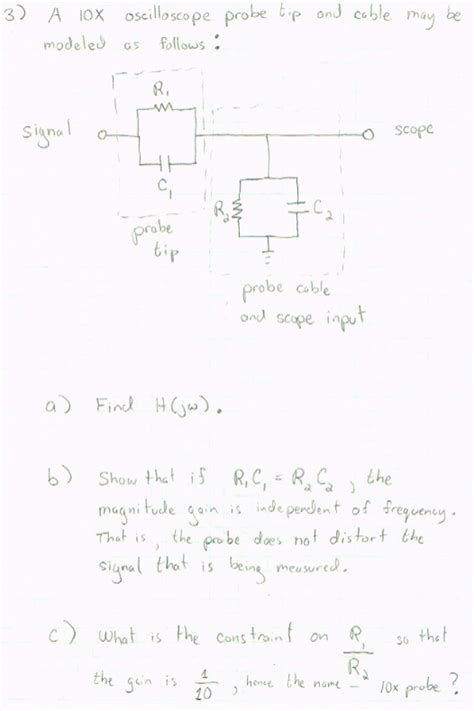 3) A 10X oscilloscope probe tip and cable may be
modeled as follows:
R₁
signal
scope
C₁
R₂
C₂
probe
tip
probe cable
and scope input
a) Find H(jω).
b) Show that if R₁C₁ = R₂C₂, the
magnitude gain is independent of frequency.
That is, the probe does not distort the
signal that is being measured.
c) What is the constraint on R₁/R₂ so that
the gain is 1/10, hence the name - 10x probe?